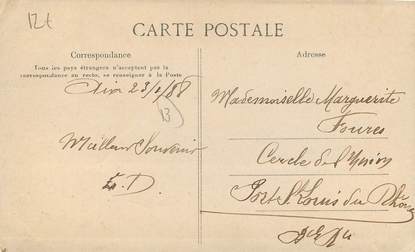 12t
CARTE POSTALE
Correspondance
Tous les pays étrangers n'acceptent pas la
correspondance au recto, se renseigner à la Poste
23/6/08
13
Meilleur Souvenir
E. D.
Adresse
Mademoiselle Marguerite
Foures
Cercle de l'Union
Port St Louis du Rhône